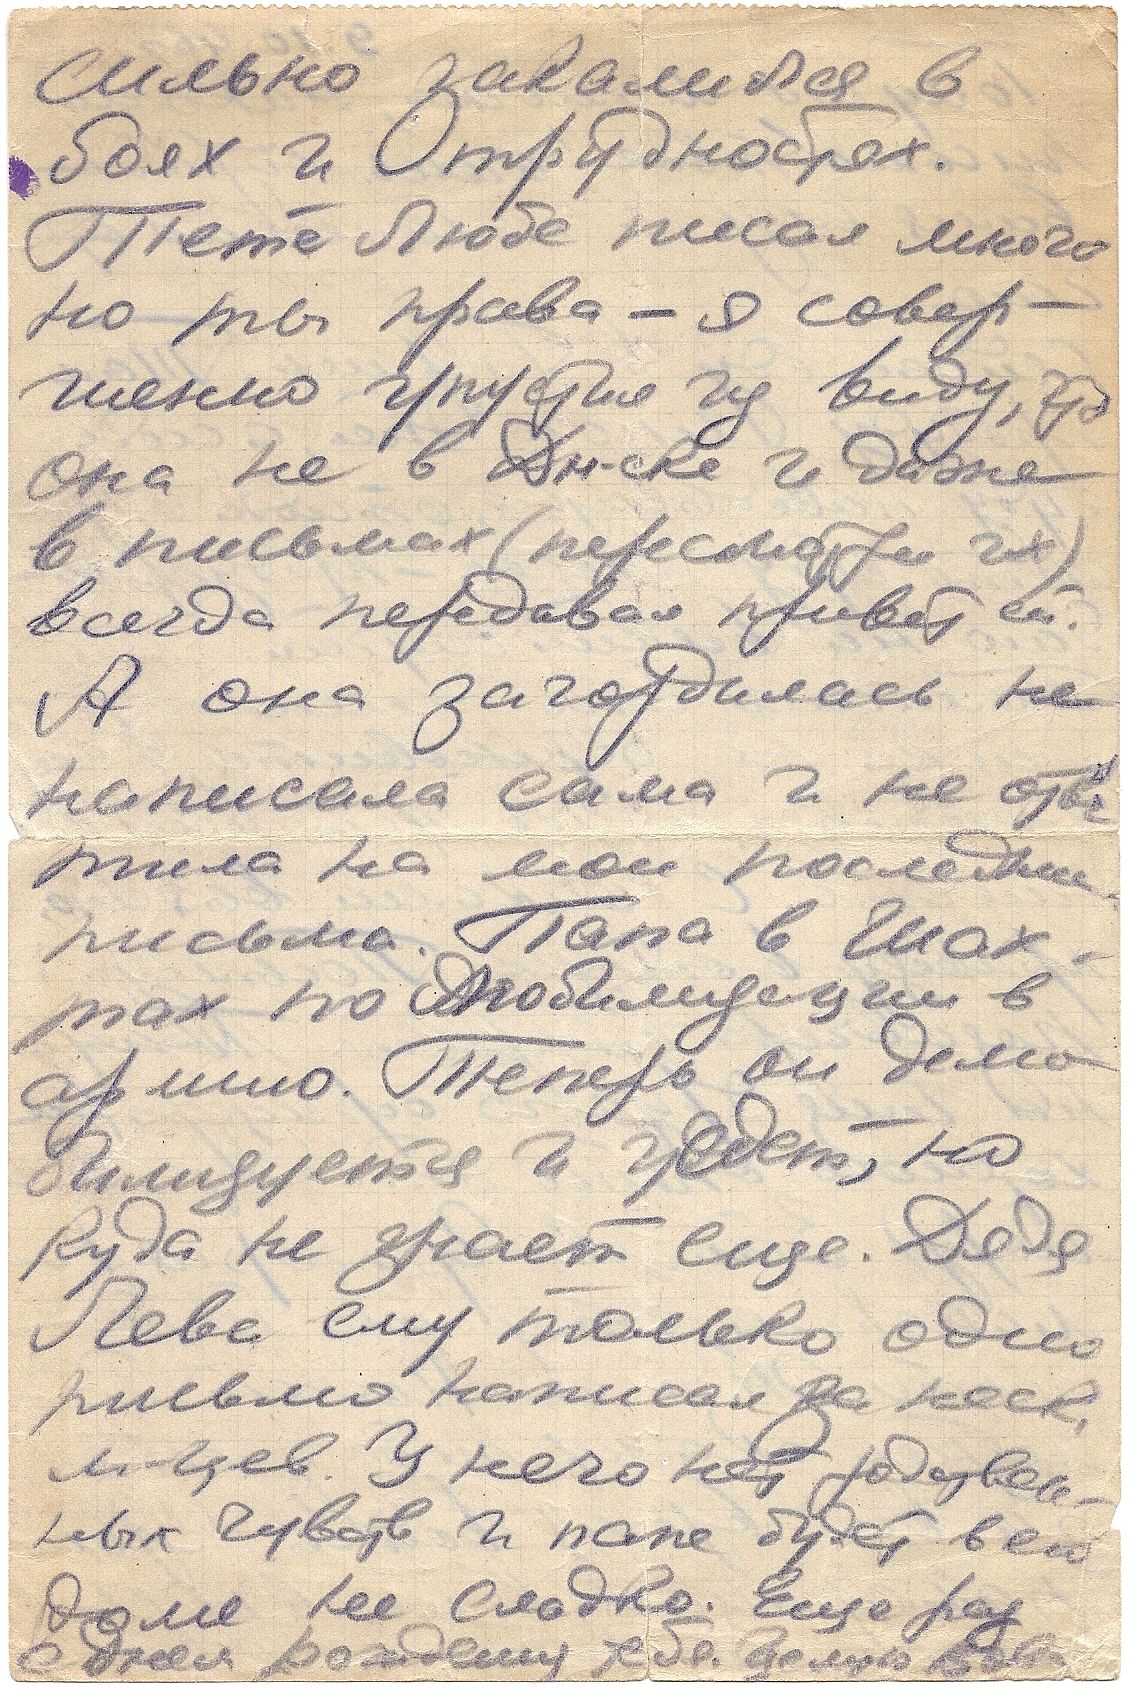 сильно закалился в
боях и трудностях.
Тете Любе писал много
но ты права – я совер-
шенно упустил из виду, что
она не в Дн-ске и даже
в письмах (пересмотри их)
всегда передавал привет ей.
А она загордилась не
написала сама и не отве
тила на мои последние
письма. Папа в Шах-
тах по мобилизации в
армию. Теперь он демо
билизуется и уедет, но
куда не знает еще. Дядя
Лева ему только одно
письмо написал за неск.
м-цев. У него нет родствен-
ных чувств и папе будет в его
доме не сладко. Еще раз
с днем рождения тебя. Целую Вова